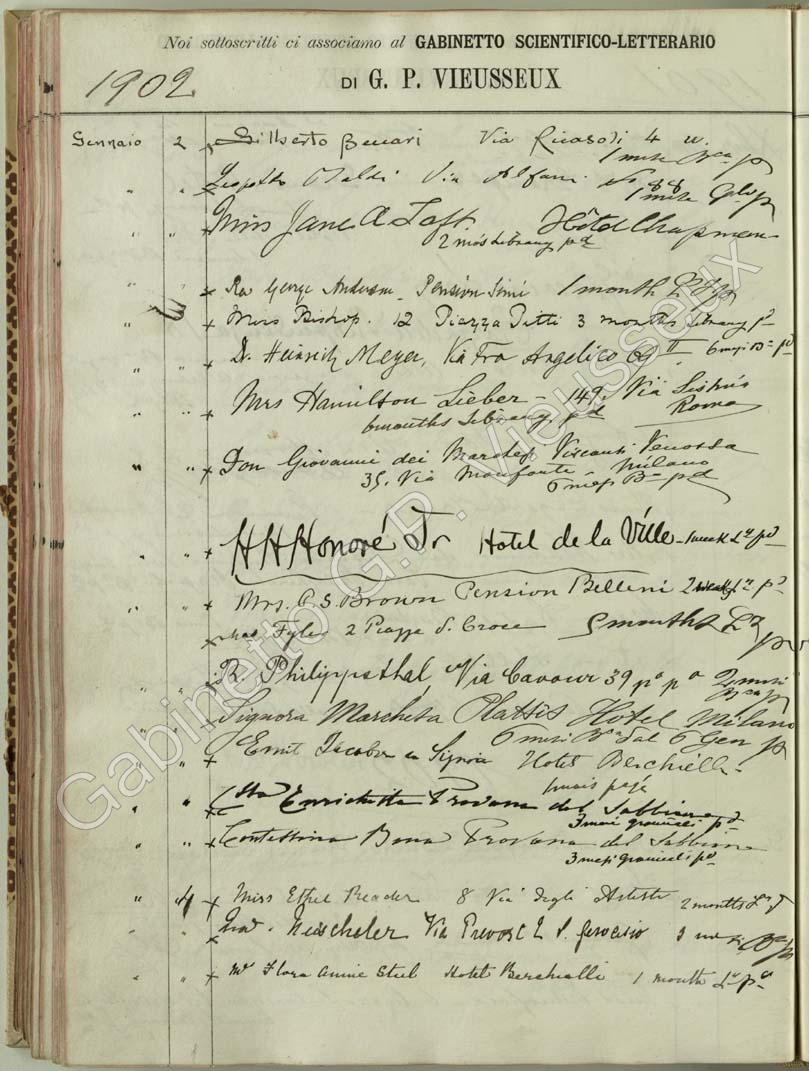 Noi sottoscritti ci associamo al GABINETTO SCIENTIFICO-LETTERARIO
1902 DI G. P. VIEUSSEUX
Gennaio 2 Gilberto Beccari Via Ricasoli 4
1 mese
" " Via Alfani 88
1 mese
" " Miss Jane A Taft. Hôtel Chapman
2 mos Library pd
" 3 Rev George Anderson Pension Simi 1 month
" " Miss Bishop. 12 Piazza Pitti 3 months library pd
" " Dr. Heinrich Meyer, Via Fra Angelico 6 mesi
" " Mrs Hamilton Lieber - 149, Via Sistina
6 months Library, pd Roma
" " Don Giovanni dei Marchesi Visconti Venosta
35, Via Monforte Milano
6 mesi pd
" " H H Honoré Jr Hotel de la Ville - 1 week pd
" " Mrs. C. S. Brown Pension Bellini 2 weeks pd
" " Fyler 2 Piazza S. Croce 5 months
" " R. Philippsthal Via Cavour 39 po po 2 mesi
" " Signora Marchesa Plattis Hotel Milano
6 mesi dal 6 Gen
" " Hotel Berchielli
1 mois payé
" " Ctssa Enrichetta Provana del Sabbione
3 mesi pd
" " Contessina Bona Provana del Sabbione
3 mesi pd
" 4 Miss Ethel Reader 8 Via degli Artisti 2 months
" " Via
" " Mrs Flora Annie Steel Hotel Berchielli 1 month pd
Gabinetto G.P. Vieusseux